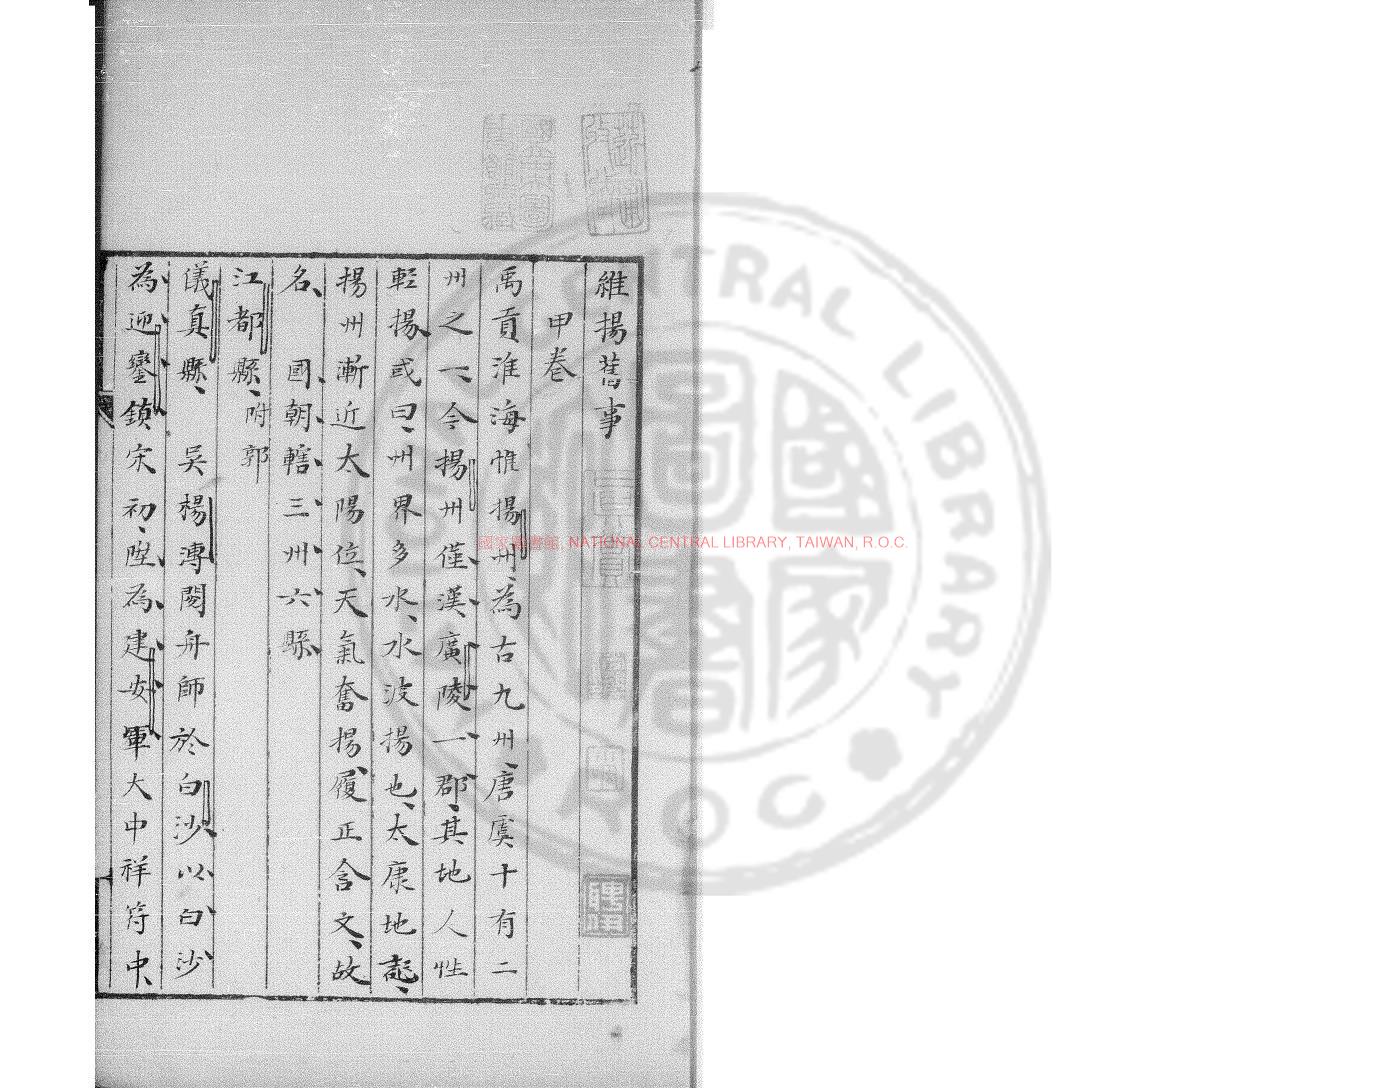 維揚舊事
甲卷
禹貢淮海惟揚州為古九州唐虞十有二
州之一今揚州僅漢廣陵一郡其地人性
輕揚或曰州界多水水波揚也太康地記
揚州漸近太陽位天氣奮揚履正含文故
名 國朝轄三州六縣
江都縣附郭
儀真縣 吳楊溥閱舟師於白沙以白沙
為迎鑾鎮宋初陞為建安軍大中祥符中
國家圖書館, NATIONAL CENTRAL LIBRARY, TAIWAN, R.O.C.